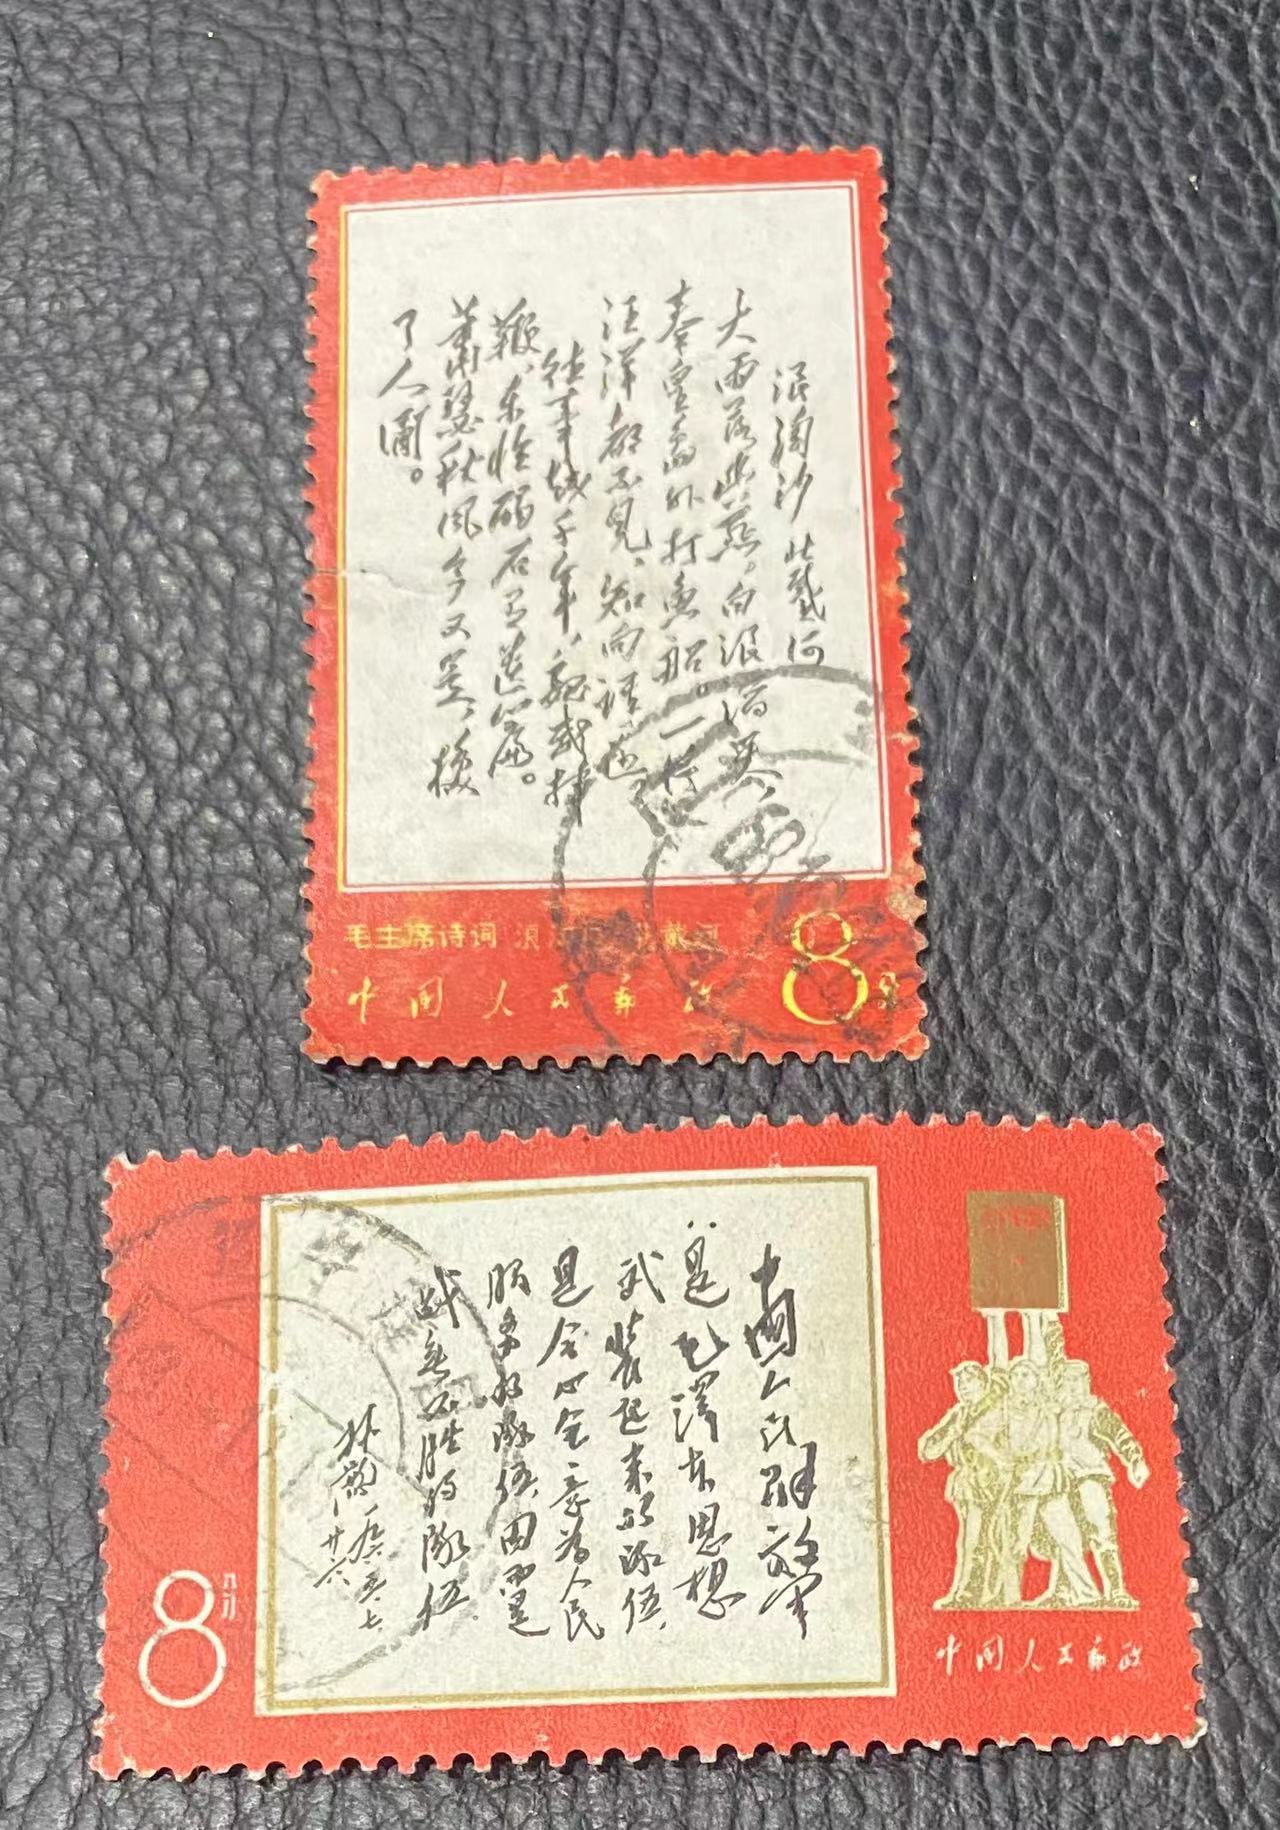 浪淘沙 北戴河
大雨落幽燕。白浪滔天,
秦皇島外打魚船。一片
汪洋都不見,知向誰邊?
往事越千年,魏武揮
鞭,東臨碣石有遺篇。
蕭瑟秋風今又是,換
了人間。
毛主席诗词 浪淘沙 北戴河
中国人民邮政 8分
中國人民解放軍
是毛澤東思想
武裝起來的隊伍,
是全心全意為人民
服务的隊伍,因而是
战無不胜的隊伍。
林彪 一九六五、七、
廿六
8 八分
中国人民邮政